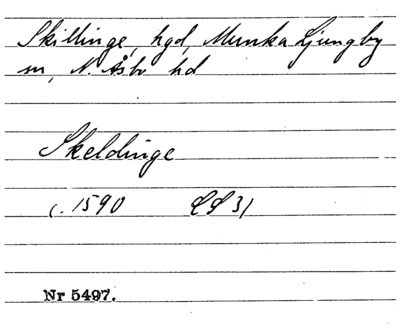 Skillinge, hgd, Munka Ljungby
sn, N. Åsbo hd
Skeldinge
c. 1590 LL 31
Nr 5497.